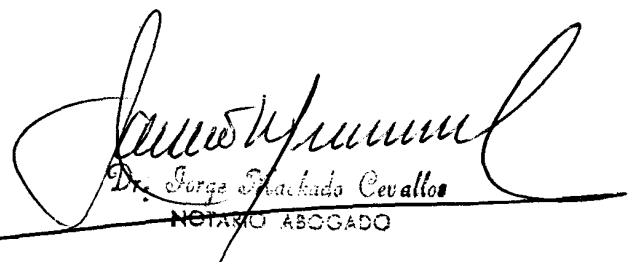 Dr. Jorge Machado Cevallos
NOTARIO ABOGADO